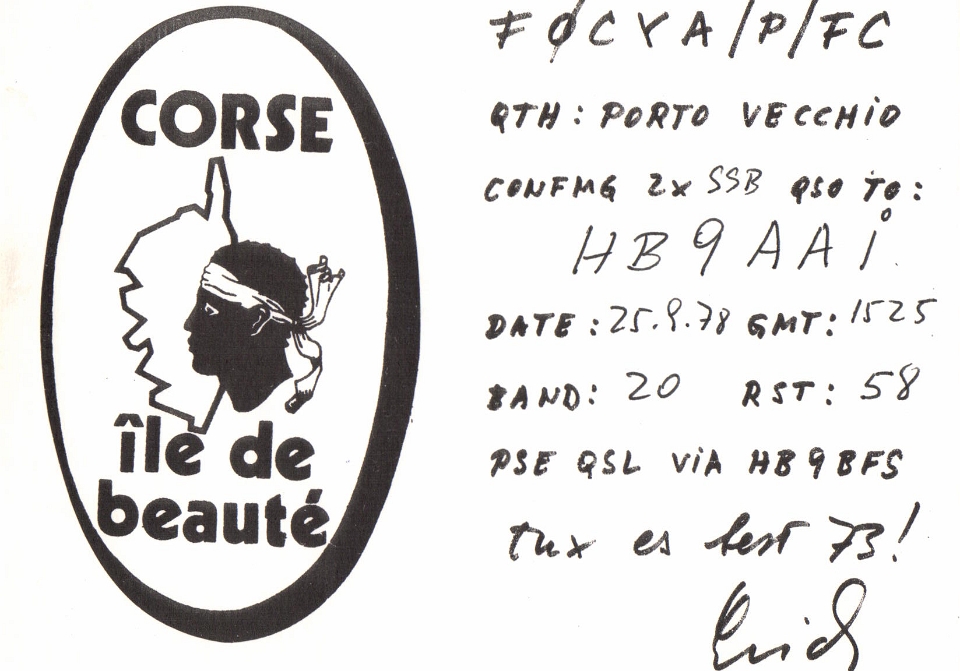 CORSE
île de
beauté
FØCYA/P/FC
QTH: PORTO VECCHIO
CONFMG 2x SSB QSO TO:
HB9AAi
DATE: 25.9.78 GMT: 1525
BAND: 20 RST: 58
PSE QSL ViA HB9BFS
tnx es best 73!
Erich